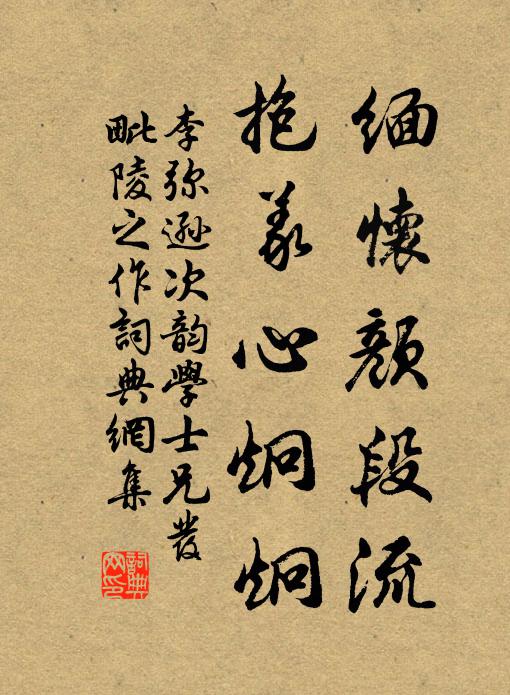 緬懷顏段流
抱義心炯炯
李弥遜次韵學士兄發
毗陵之作詞典網集
詞典
网印